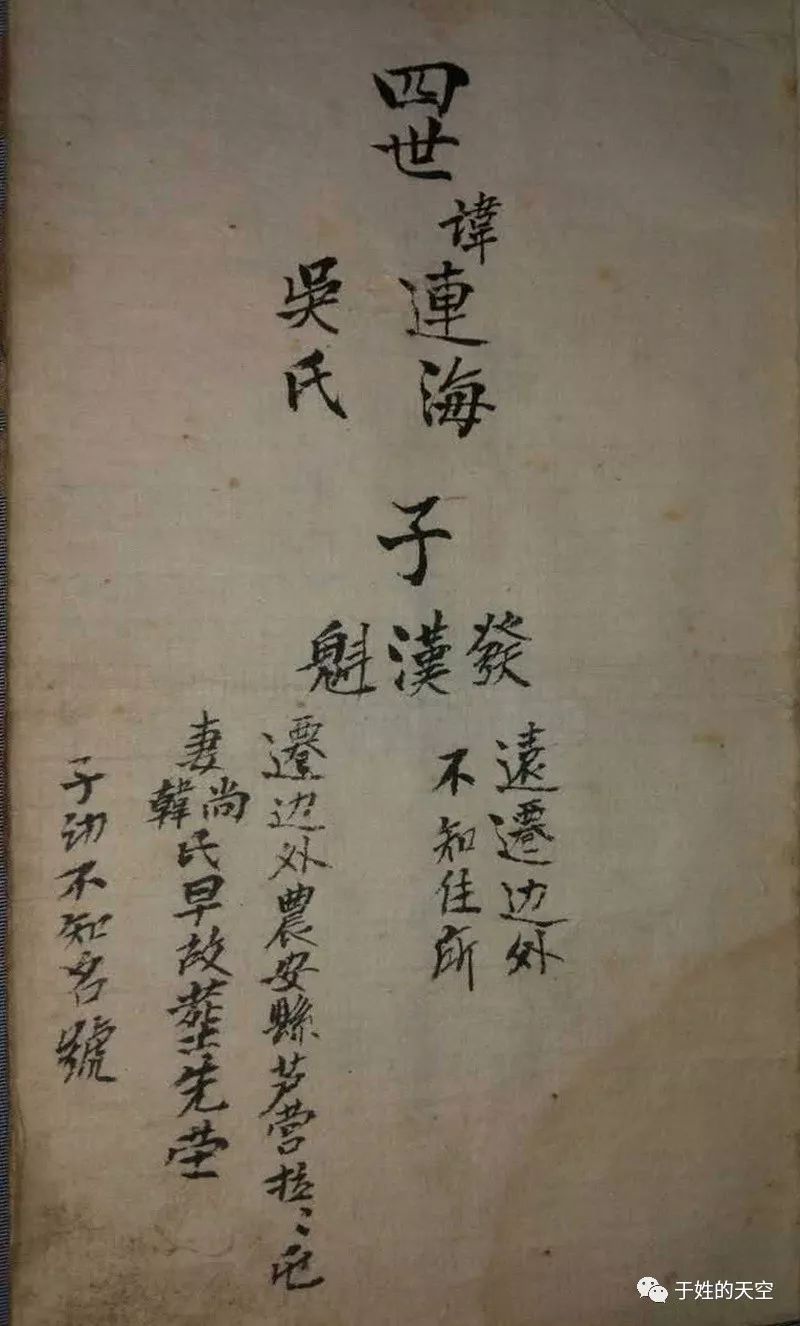 四世
諱連海
吳氏
子
發漢魁
遠遷边外
不知住所
遷边外農安縣芦营拉〻屯
妻尚韓氏早故塟先茔
子幼不知名號
于姓的天空